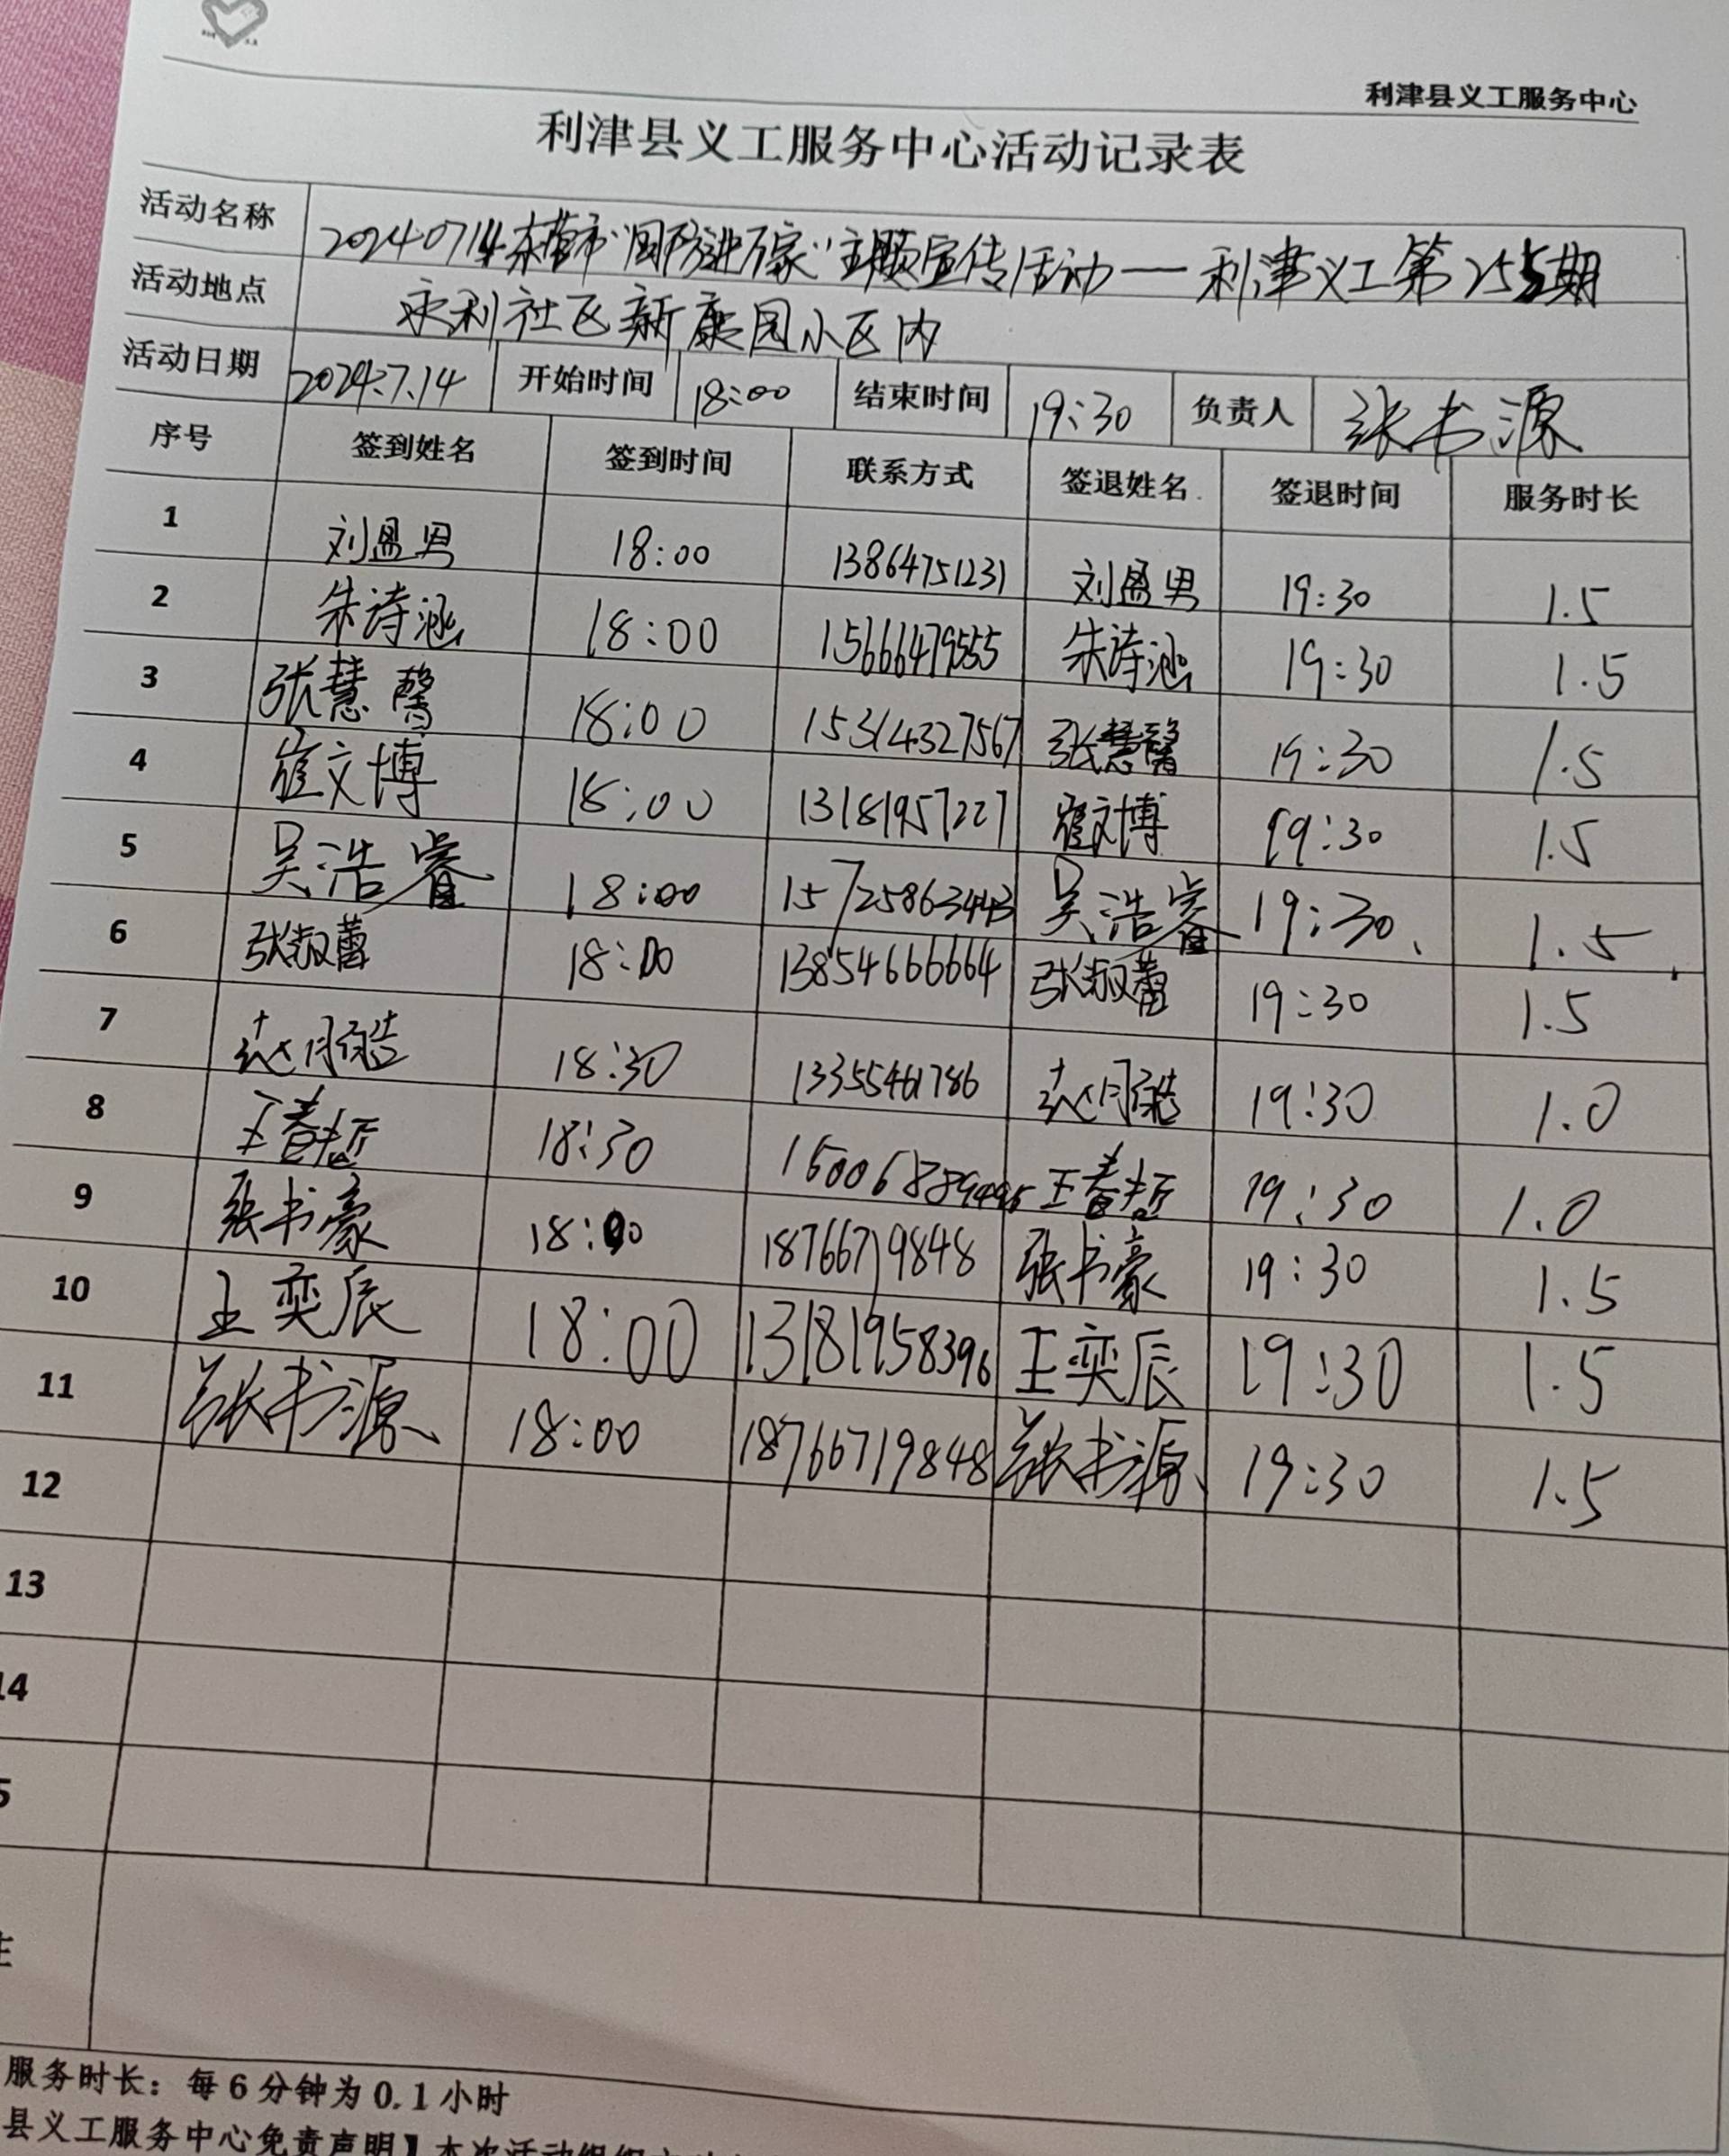 利津县义工服务中心
利津县义工服务中心活动记录表
活动名称 20240714东营市"国防进万家"主题宣传活动——利津义工第255期
活动地点 永利社区新康园小区内
活动日期 2024.7.14 开始时间 18:00 结束时间 19:30 负责人 张书源
序号 签到姓名 签到时间 联系方式 签退姓名 签退时间 服务时长
1 刘盈男 18:00 13864751231 刘盈男 19:30 1.5
2 朱诗涵 18:00 15666479555 朱诗涵 19:30 1.5
3 张慧馨 18:00 15314327567 张慧馨 19:30 1.5
4 崔文博 18:00 13181957227 崔文博 19:30 1.5
5 吴浩睿 18:00 15725863443 吴浩睿 19:30 1.5
6 张淑蕾 18:00 13854666664 张淑蕾 19:30 1.5
7 18:30 13355461786 19:30 1.0
8 王春哲 18:30 王春哲 19:30 1.0
9 张书豪 18:00 18766719848 张书豪 19:30 1.5
10 王奕辰 18:00 13181958396 王奕辰 19:30 1.5
11 张书源 18:00 18766719848 张书源 19:30 1.5
12
13
14
5
服务时长：每6分钟为0.1小时
县义工服务中心免责声明】本次活动组织